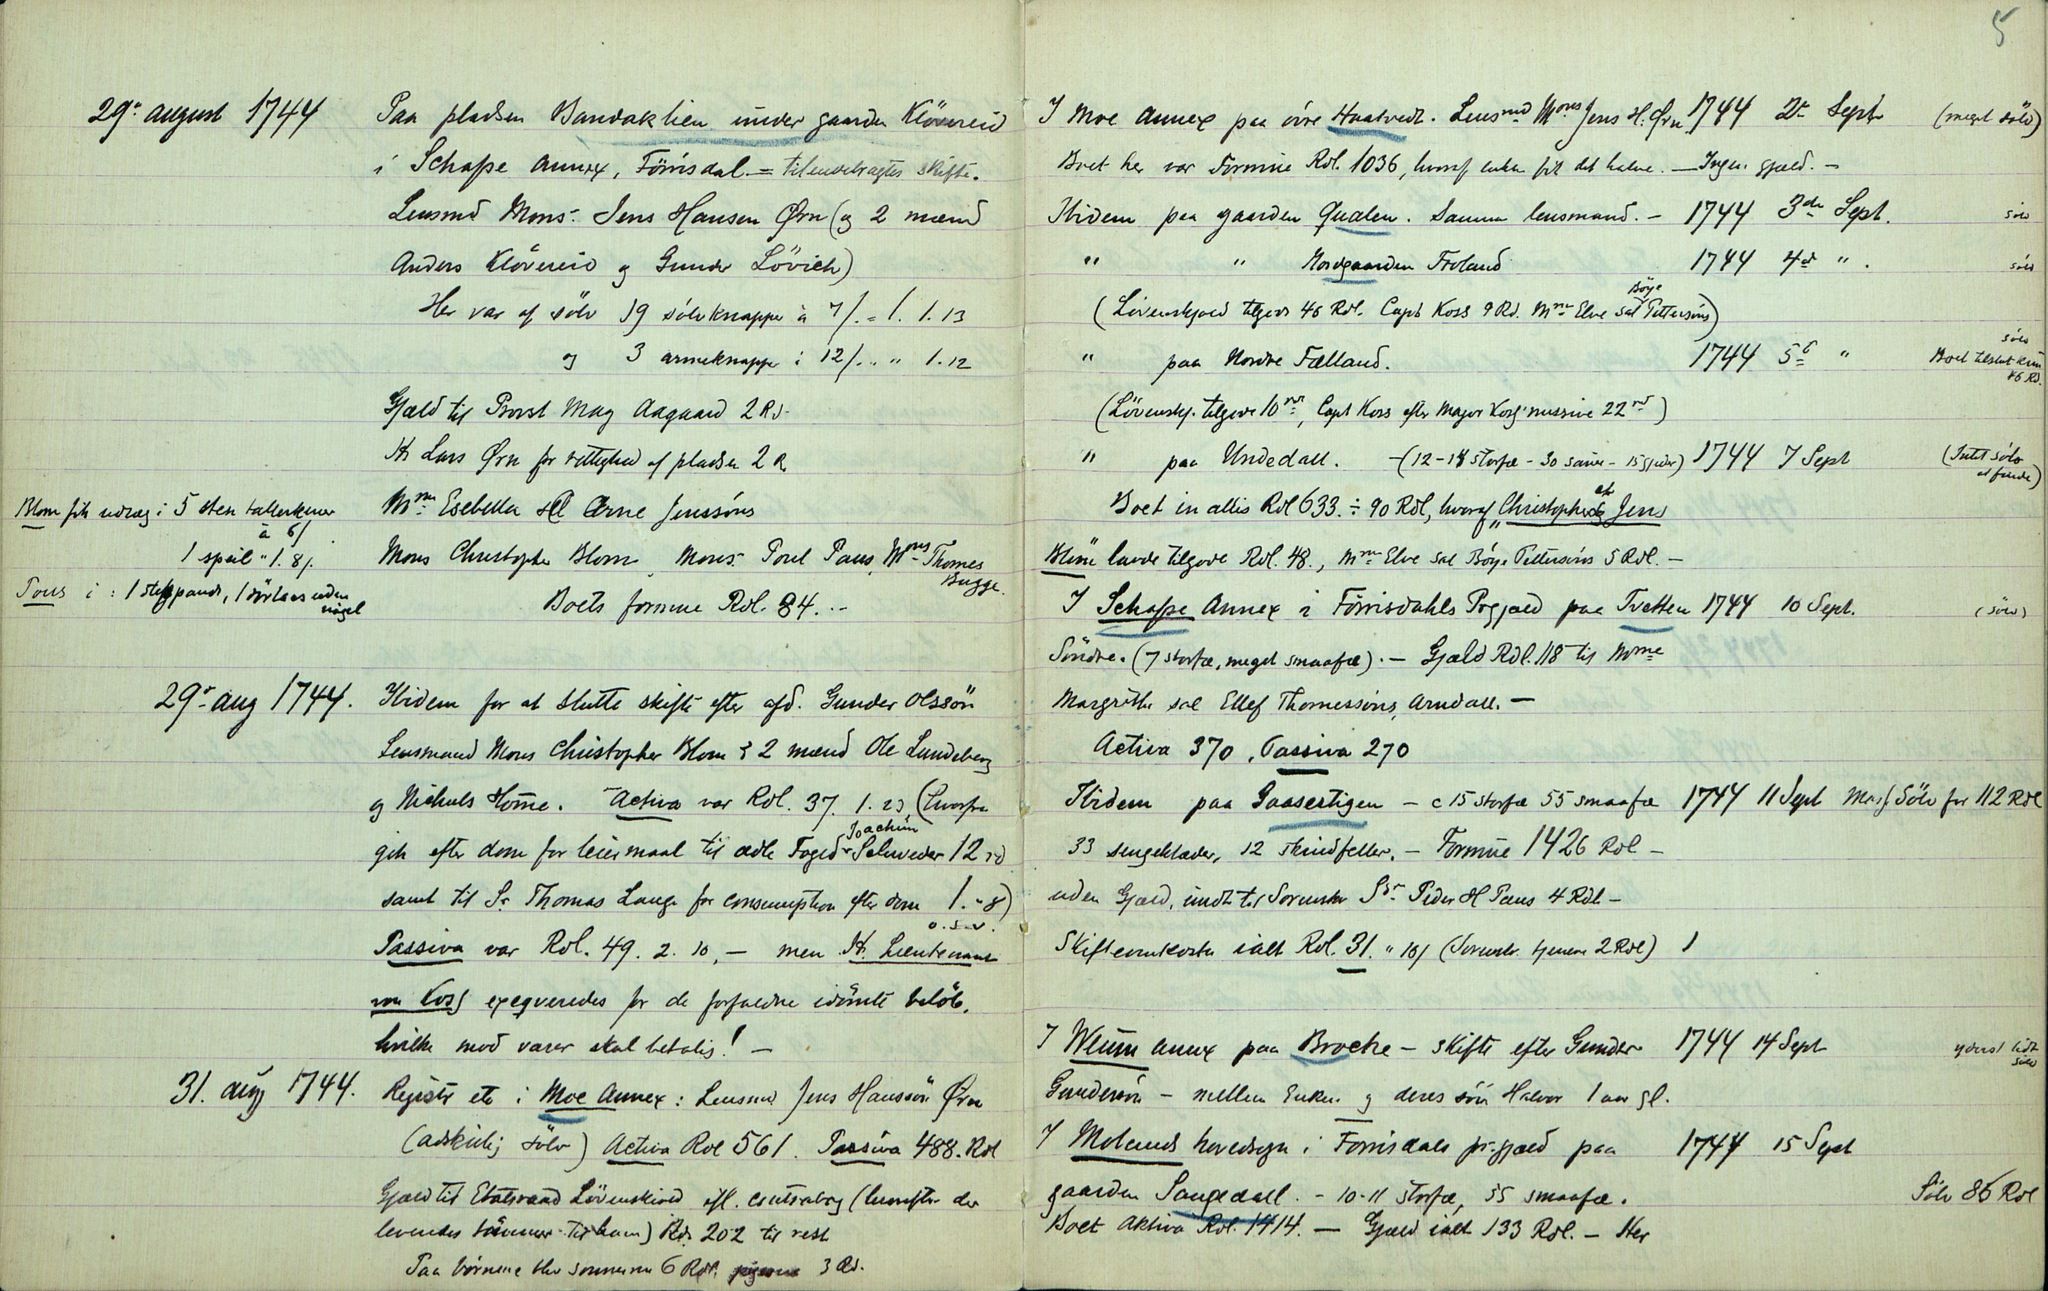 29de august 1744 Paa pladsen Bandaklien under gaarden Klövereid
i Schafse Annex, Förrisdal = tilendebragtes skifte.
Lensmd Mons. Jens Hansen Ørn (og 2 mænd
Anders Klövereid og Gunder Lövich)
Her var af sölv 19 sölvknappe à 7/. = 1. 1. 13
og 3 armeknapper i 12/. .. " 1. 12
Gjæld til Provst Mag Aagaard 2 Rd.
Hr Lars Ørn for rettighed af pladsen 2 R
Mme Esebella sal Arne Jenssöns
Blom fik udlæg i 5 sten tallerkener
à 6/
1 speil " 1. 8/.
Mons Christopher Blom, Mons. Poul Paus, Mons Thomes
Bugge.
Paus i : 1 stegpande, 1 dörlaas uden
nögel
Boets formue Rdl. 84. . -
29de aug 1744. Ibidem for at slutte skifte efter afd. Gunder Olssön
Lensmand Mons Christopher Blom & 2 mænd Ole Lundeberg
og Nichuls Homme. Activa var Rdl. 37. 1. 23 (hvorfra
gik efter dom for leiermaal til ædle Foged Joachim Schweder 12 rd
samt til Sr Thomas Lange for consumption efter dom 1. " 8)
o.s.v.
Passiva var Rdl. 49. 2. 10, - men Hr. Lieutenant
von Koss exeqveredes for de forfaldne idömte belöb,
hvilke med varer skal betales! -
31. aug 1744. Registr etc i Moe Annex: Lensmd Jens Hanssön Ørn
(adskillig sölv) Activa Rdl 561. Passiva 488. Rdl
Gjæld til Etatsraad Lövenskiold efl. contrabog (hvorefter der
leveredes tömmer til ham) Rdr 202 til rest
Paa börnene blev sönnerne 6 Rdl. pigerne 3 Rd.
5
I Moe Annex paa övre Haatvedt. Lensmd Mons Jens H. Ørn 1744 2de Septr (meget sölv)
Boet her var Formue Rdl. 1036, hvoraf enken fik det halve. — Ingen gjæld. -
Ibidem paa gaarden Qualen. Samme lensmand. - 1744 3de Sept. sölv
" " Nordgaarden Froland 1744 4de " . sölv
(Lövenskjold tilgode 46 Rdl. Capt Koss 9 Rd. Mme Elve sal Böye Pettersöns)
" paa Nordre Fælland. 1744 5te " sölv
Boet tilslut kun
46 Rd.
(Lövenskj. tilgode 10 , Capt Koss efter Major Koss' missive 22 )
" paa Undedall. - (12-14 storfæ - 30 sauer - 15 gjeder) 1744 7 Sept (Intet sölv
at finde)
Boet in allis Rdl 633. ÷ 90 Rdl, hvoraf Christopher Jens
Blom havde tilgode Rdl. 48., Mme Elve sal Böye Pettersöns 5 Rdl. -
I Schafse Annex i Förrisdahls Prgjæld paa Tvetten 1744 10 Sept. (sölv)
Söndre. (7 storfæ, meget smaafæ). - Gjæld Rdl. 118 til Mme
Margrethe sal Ellef Thomessöns, Arndall. -
Activa 370, Passiva 270
Ibidem paa Gaasestigen - c 15 storfæ 55 smaafæ 1744 11 Sept Mass. Sölv for 112 Rdl
33 sengeklæder, 12 skindfeller. - Formue 1426 Rdl -
uden Gjæld, undt til Sorenskr Sr Peder H Paus 4 Rdl -
Skifteomkostn ialt Rdl. 31. " 10/ (Sorenskr. tjenere 2 Rdl)
I Weum annex paa Brocke - skifte efter Gunder 1744 14 Sept yderst lidt
sölv
Gundersön - mellem Enken og deres sön Halvor 1 aar gl.
I Molands hovedsogn i Förrisdals pr.gjæld paa 1744 15 Sept
gaarden Saugedall. - 10-11 storfæ, 55 smaafæ. Sölv 86 Rdl
Boet Aktiva Rdl. 1414. — Gjæld ialt 133 Rdl. - Her